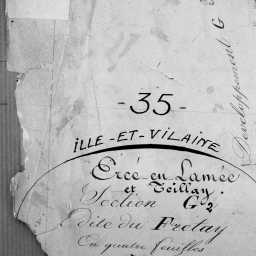 Developpement G
- 35 -
ILLE-ET-VILAINE
Ercé en Lamée
et Teillay.
Section G2
dite du Frelay
En quatre feuilles